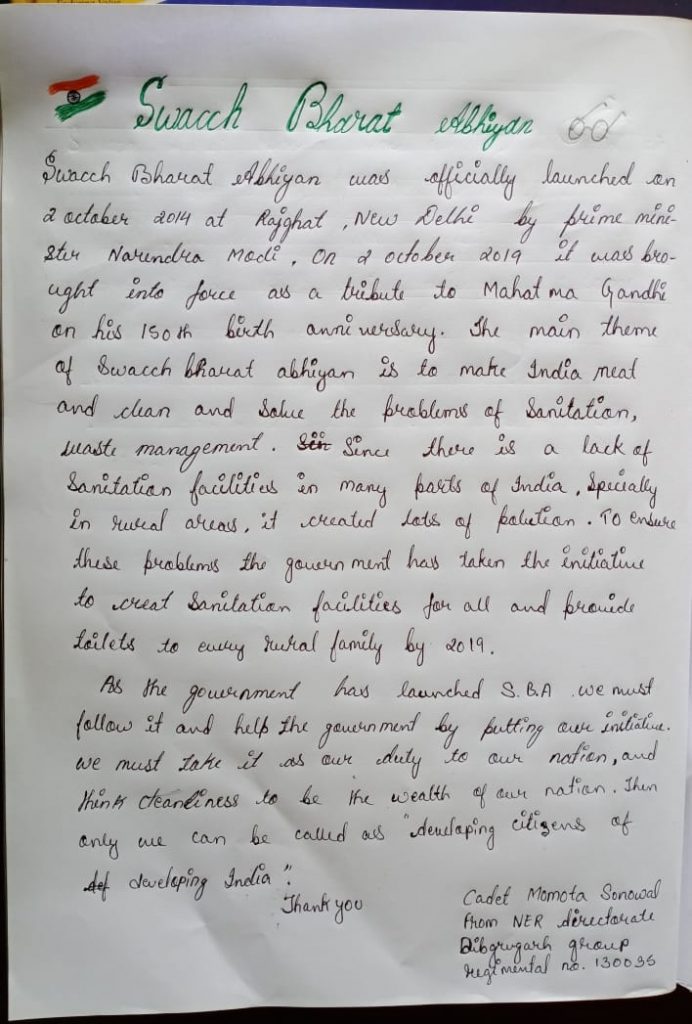 Swacch Bharat Abhiyan
Swacch Bharat Abhiyan was officially launched on
2 october 2014 at Rajghat, New Delhi by prime mini-
ster Narendra Modi. On 2 october 2019 it was bro-
ught into force as a tribute to Mahatma Gandhi
on his 150th birth anniversary. The main theme
of Swacch bharat abhiyan is to make India neat
and clean and solve the problems of Sanitation,
waste management. Sin Since there is a lack of
Sanitation facilities in many parts of India, Specially
in rural areas, it created lots of polution. To ensure
these problems the government has taken the initiative
to creat sanitation facilities for all and provide
toilets to every rural family by 2019.
As the government has launched S.B.A we must
follow it and help the government by putting our initiative.
we must take it as our duty to our nation, and
think cleanliness to be the wealth of our nation. Then
only we can be called as "developing citizens of
def developing India".
Thank you
Cadet Momota Sonowal
From NER directorate
Dibgrugarh group
regimental no. 130035